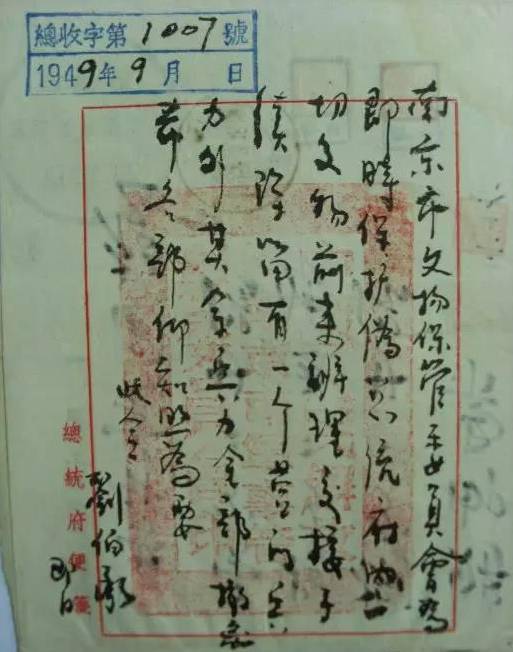 總收字第1007號
1949年9月 日
南京市文物保管委員會為
即時保护偽总统府
切文物前来辦理交接手
續除留有一个营的兵
力外其余兵力全部撤
希各部仰知照為要
此令
劉伯承
總統府便箋